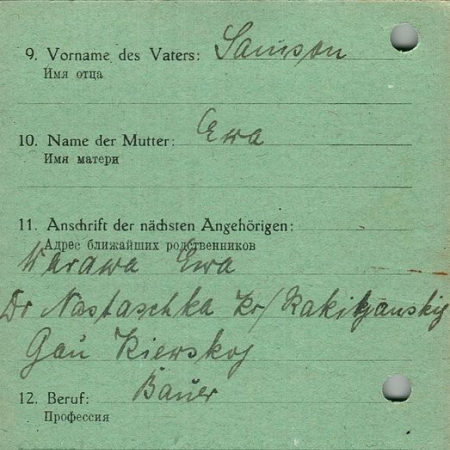 9. Vorname des Vaters: Samson
Имя отца
10. Name der Mutter: Ewa
Имя матери
11. Anschrift der nächsten Angehörigen:
Адрес ближайших родственников
Warawa Ewa
Dr Nastaschka Kr/Rakitjanskij
Gau Kiewskoj
12. Beruf: Bauer
Профессия